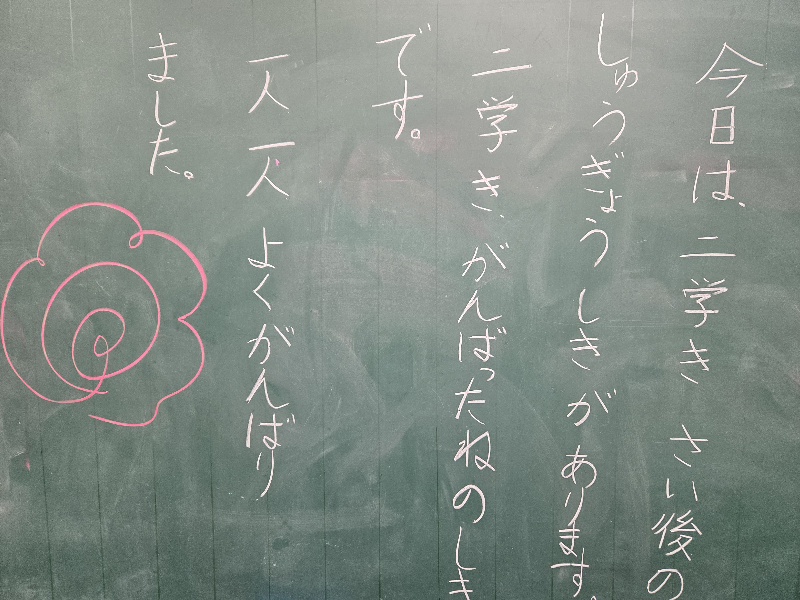 今日は、二学き さい後の
しゅうぎょうしきがあります。
二学き、がんばったねのしき
です。
一人一人よくがんばり
ました。